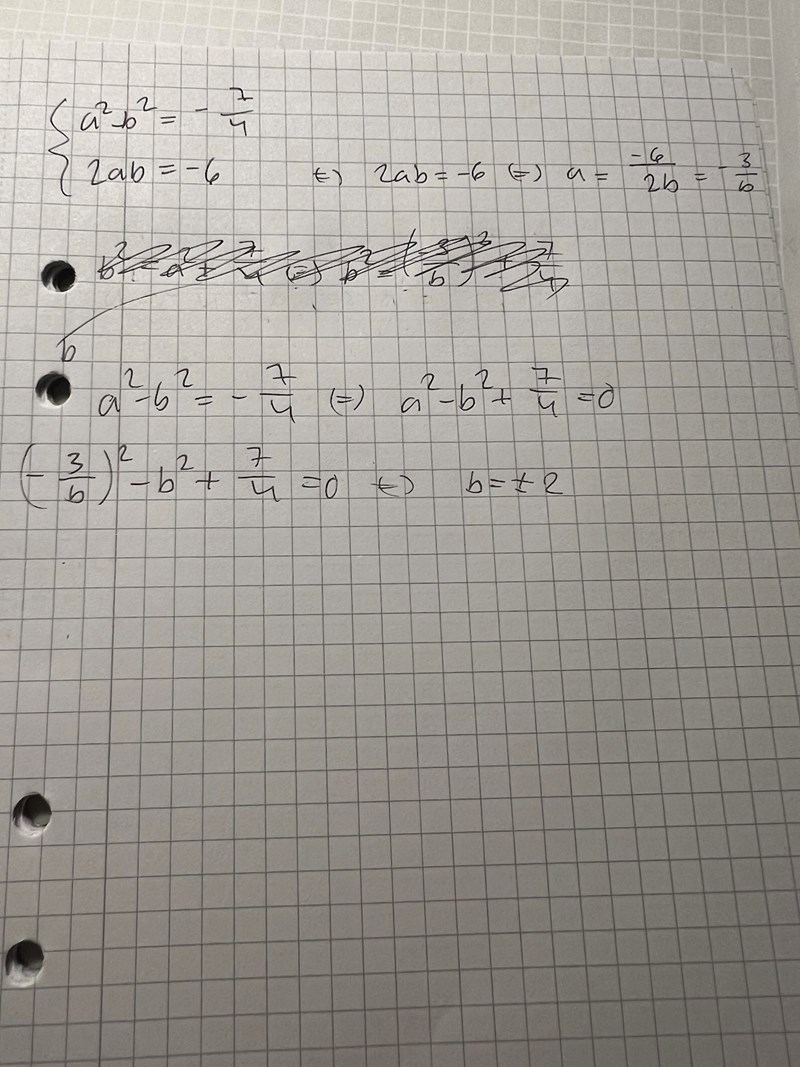 { a² - b² = - 7/4
{ 2ab = -6 ⇔ 2ab = -6 ⇔ a = -6/2b = - 3/b
b
a² - b² = - 7/4 ⇔ a² - b² + 7/4 = 0
(- 3/b)² - b² + 7/4 = 0 ⇔ b = ± 2